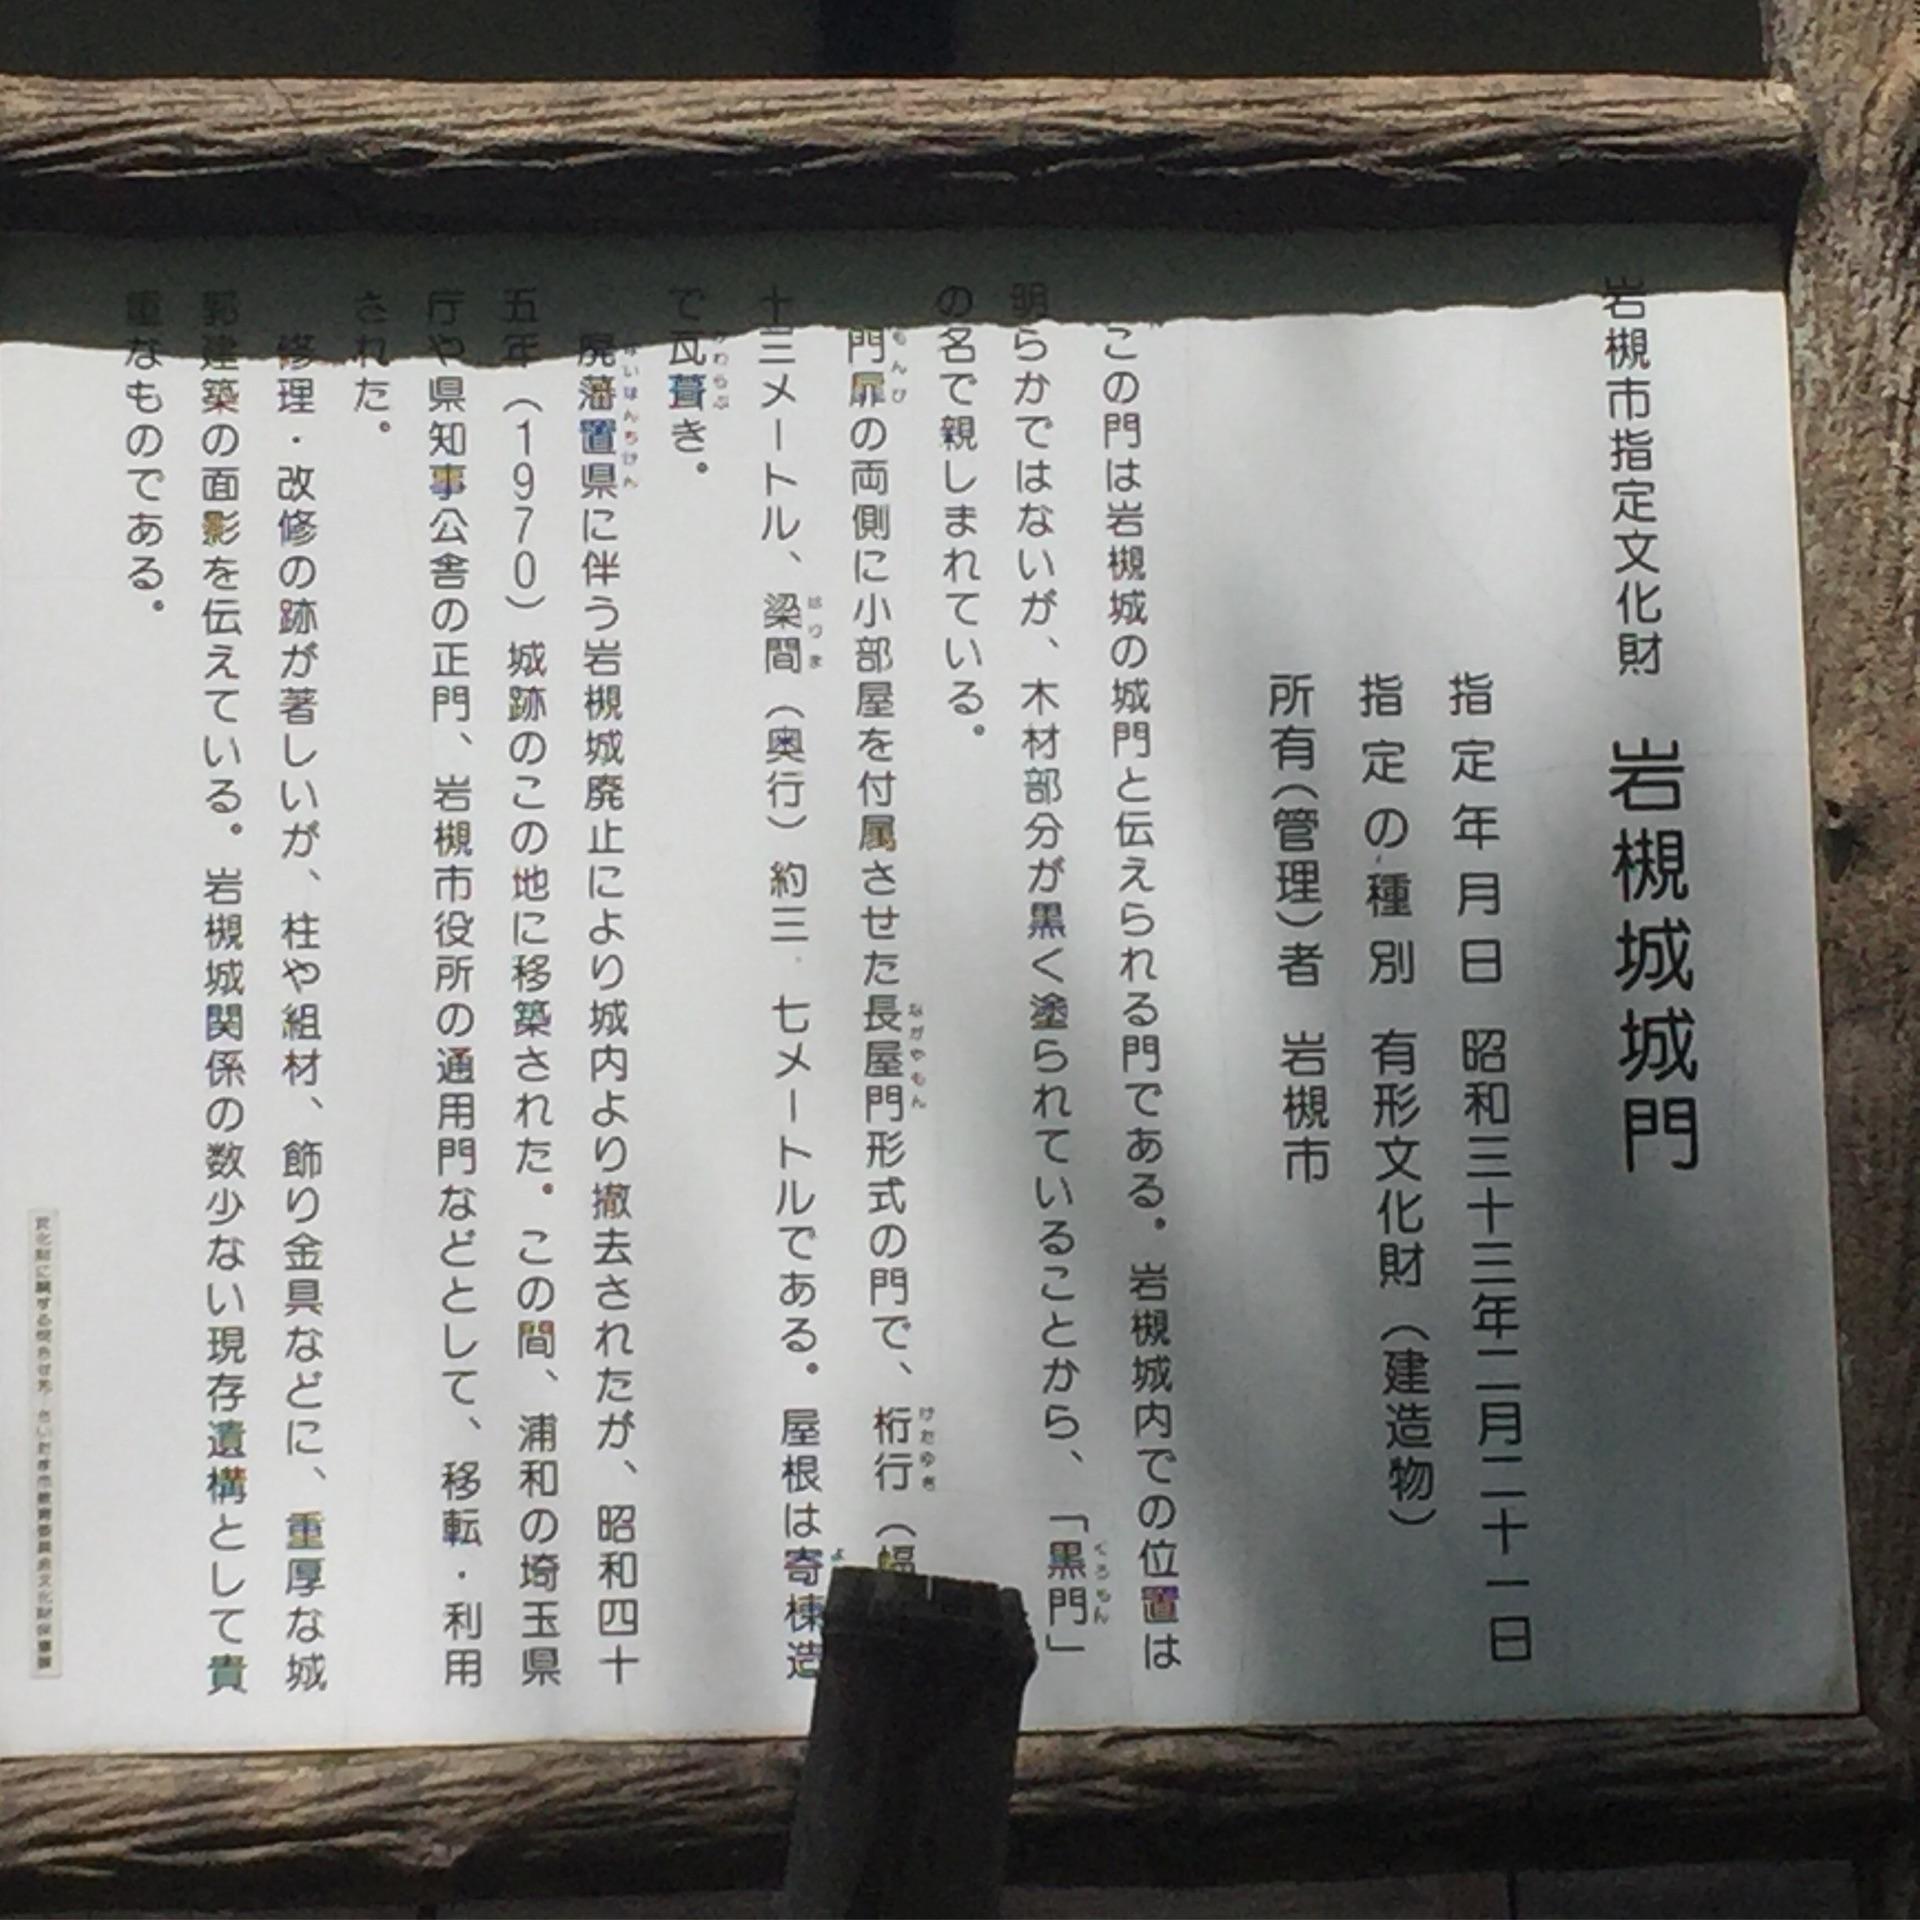 岩槻市指定文化財　岩槻城城門
指定年月日　昭和三十三年二月二十一日
指定の種別　有形文化財（建造物）
所有（管理）者　岩槻市
この門は岩槻城の城門と伝えられる門である。岩槻城内での位置は
明らかではないが、木材部分が黒く塗られていることから、「黒門」
の名で親しまれている。
門扉の両側に小部屋を付属させた長屋門形式の門で、桁行（幅
十三メートル、梁間（奥行）約三．七メートルである。屋根は寄棟造
で瓦葺き。
廃藩置県に伴う岩槻城廃止により城内より撤去されたが、昭和四十
五年（1970）城跡のこの地に移築された。この間、浦和の埼玉県
庁や県知事公舎の正門、岩槻市役所の通用門などとして、移転・利用
された。
修理・改修の跡が著しいが、柱や組材、飾り金具などに、重厚な城
郭建築の面影を伝えている。岩槻城関係の数少ない現存遺構として貴
重なものである。